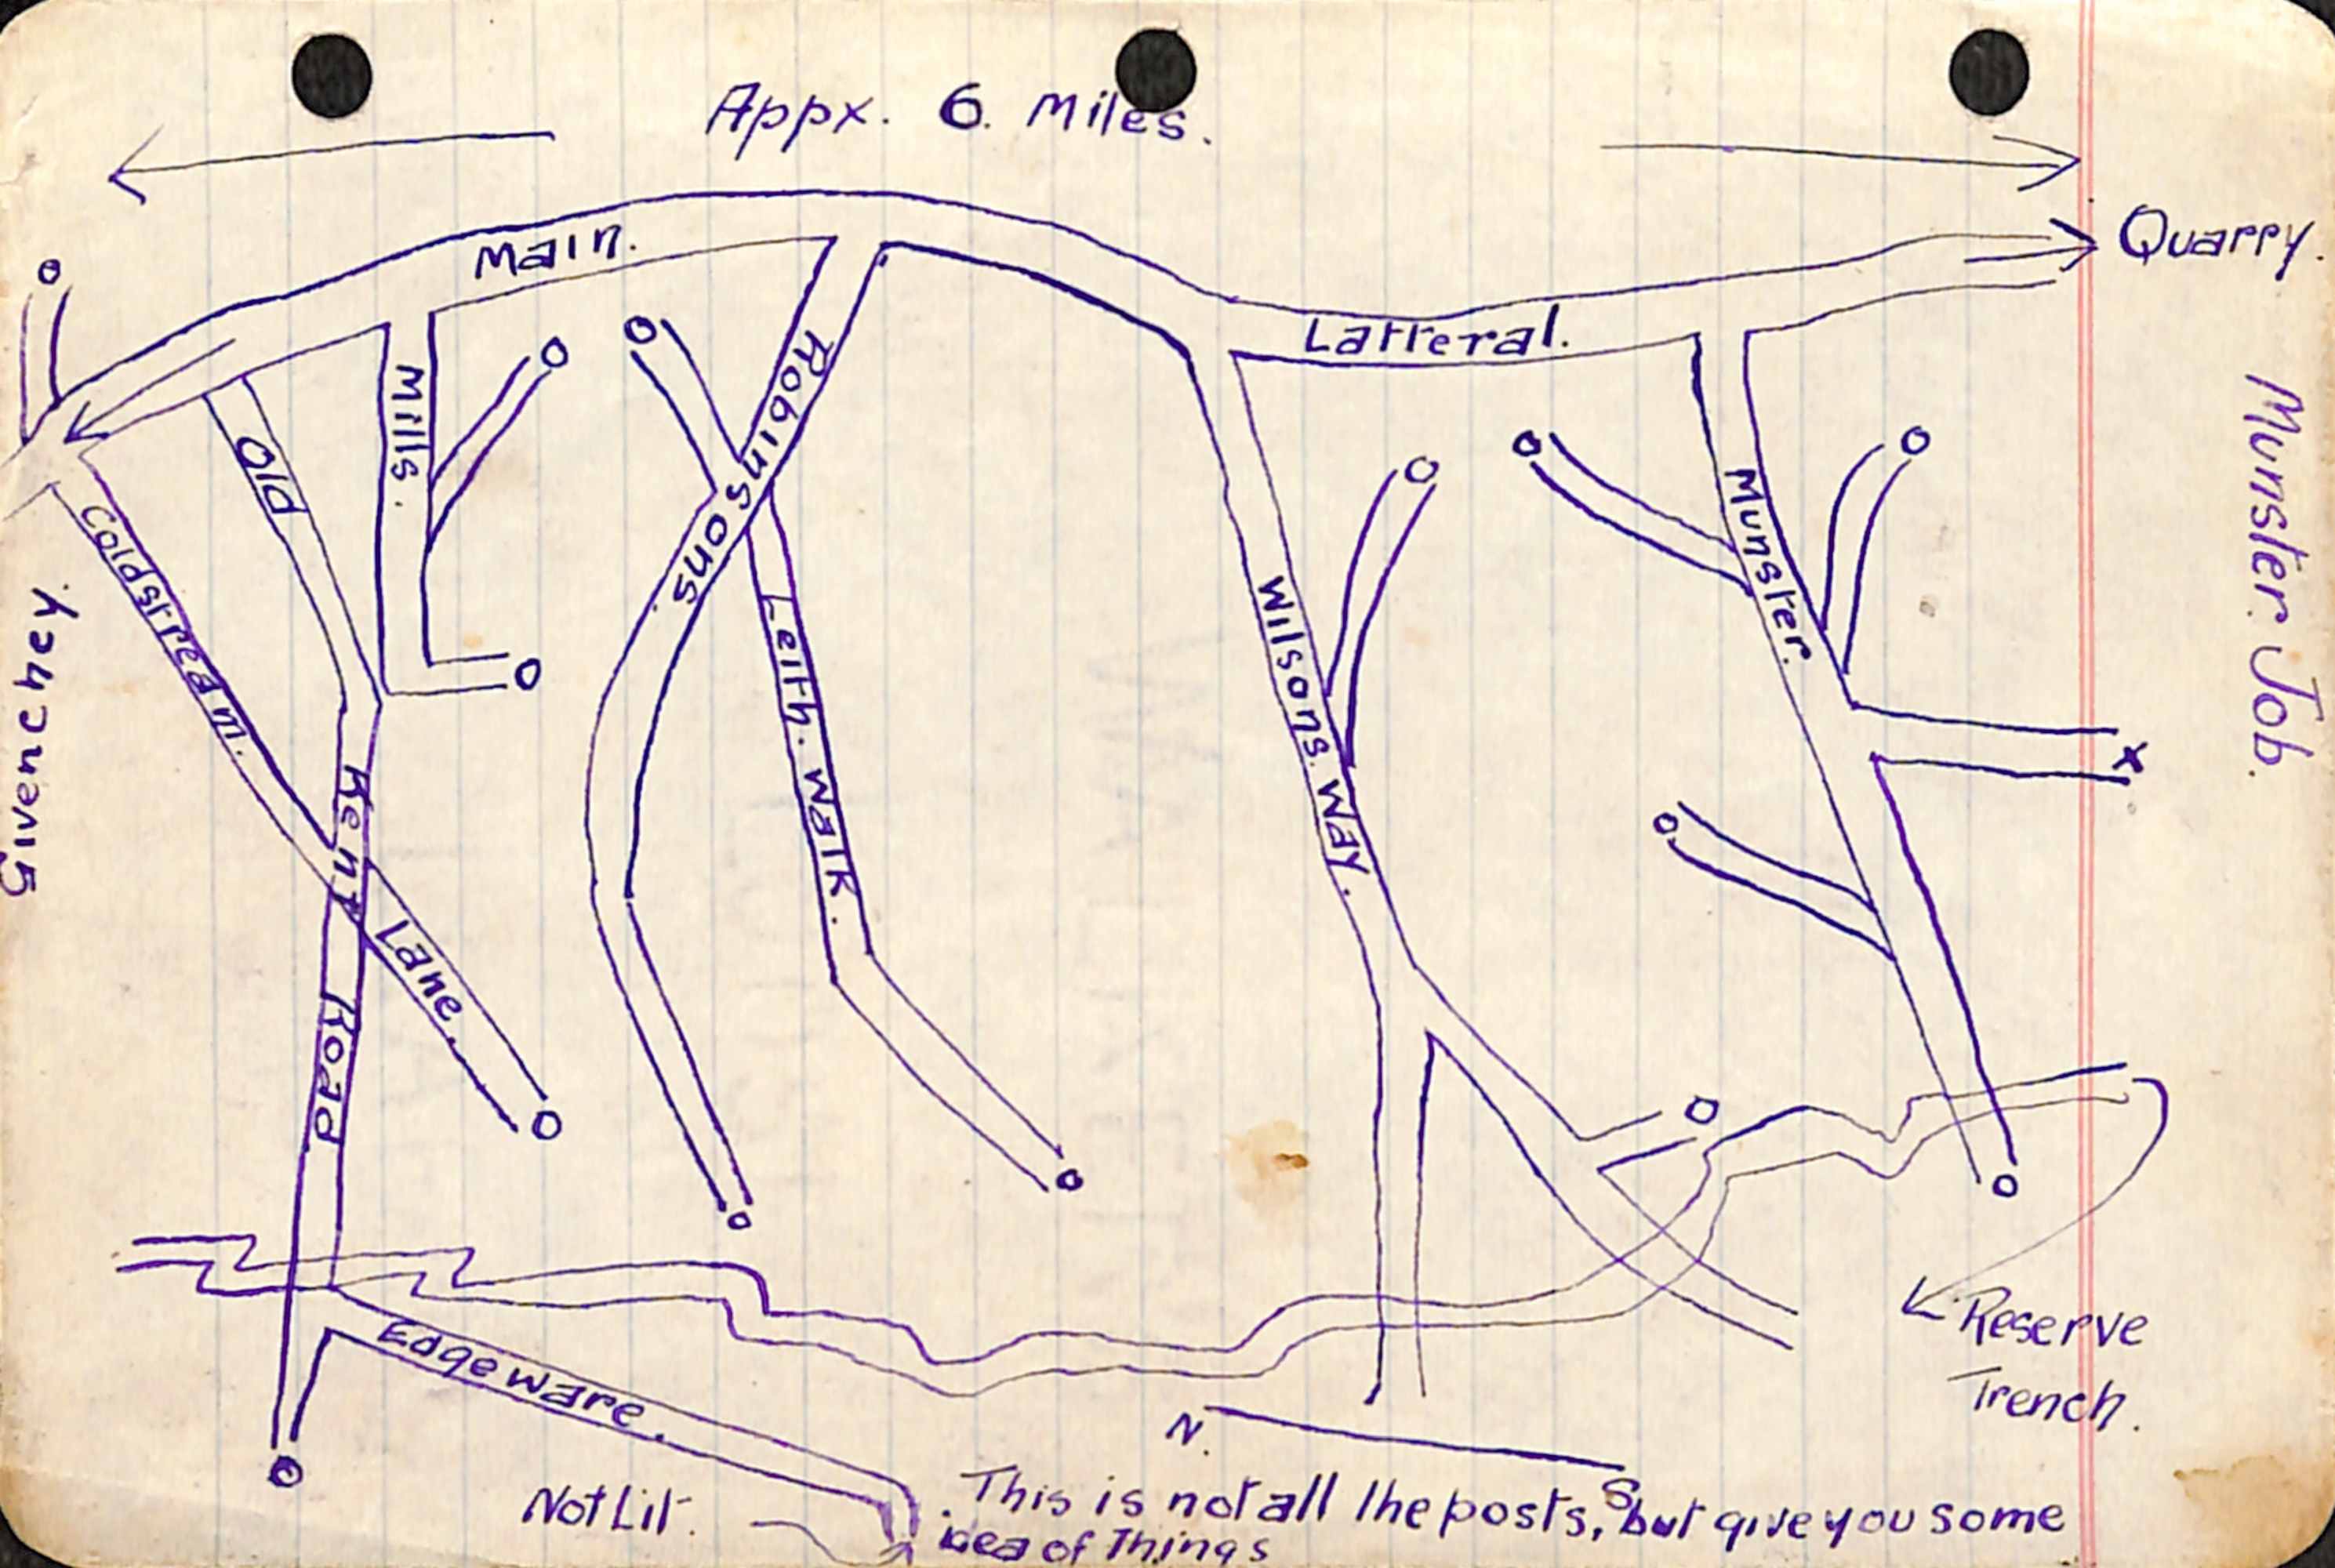 Appx. 6. Miles.
Main.
Quarry.
Latteral.
Mills.
Robinsons.
Old
Kent
Road
Coldstream.
Lane.
Leith. Walk.
Wilsons. Way.
Munster.
Munster. Job.
Givenchey.
Edgeware.
Reserve
Trench.
N.
S
Not Lit.
This is not all the posts, but give you some
idea of Things